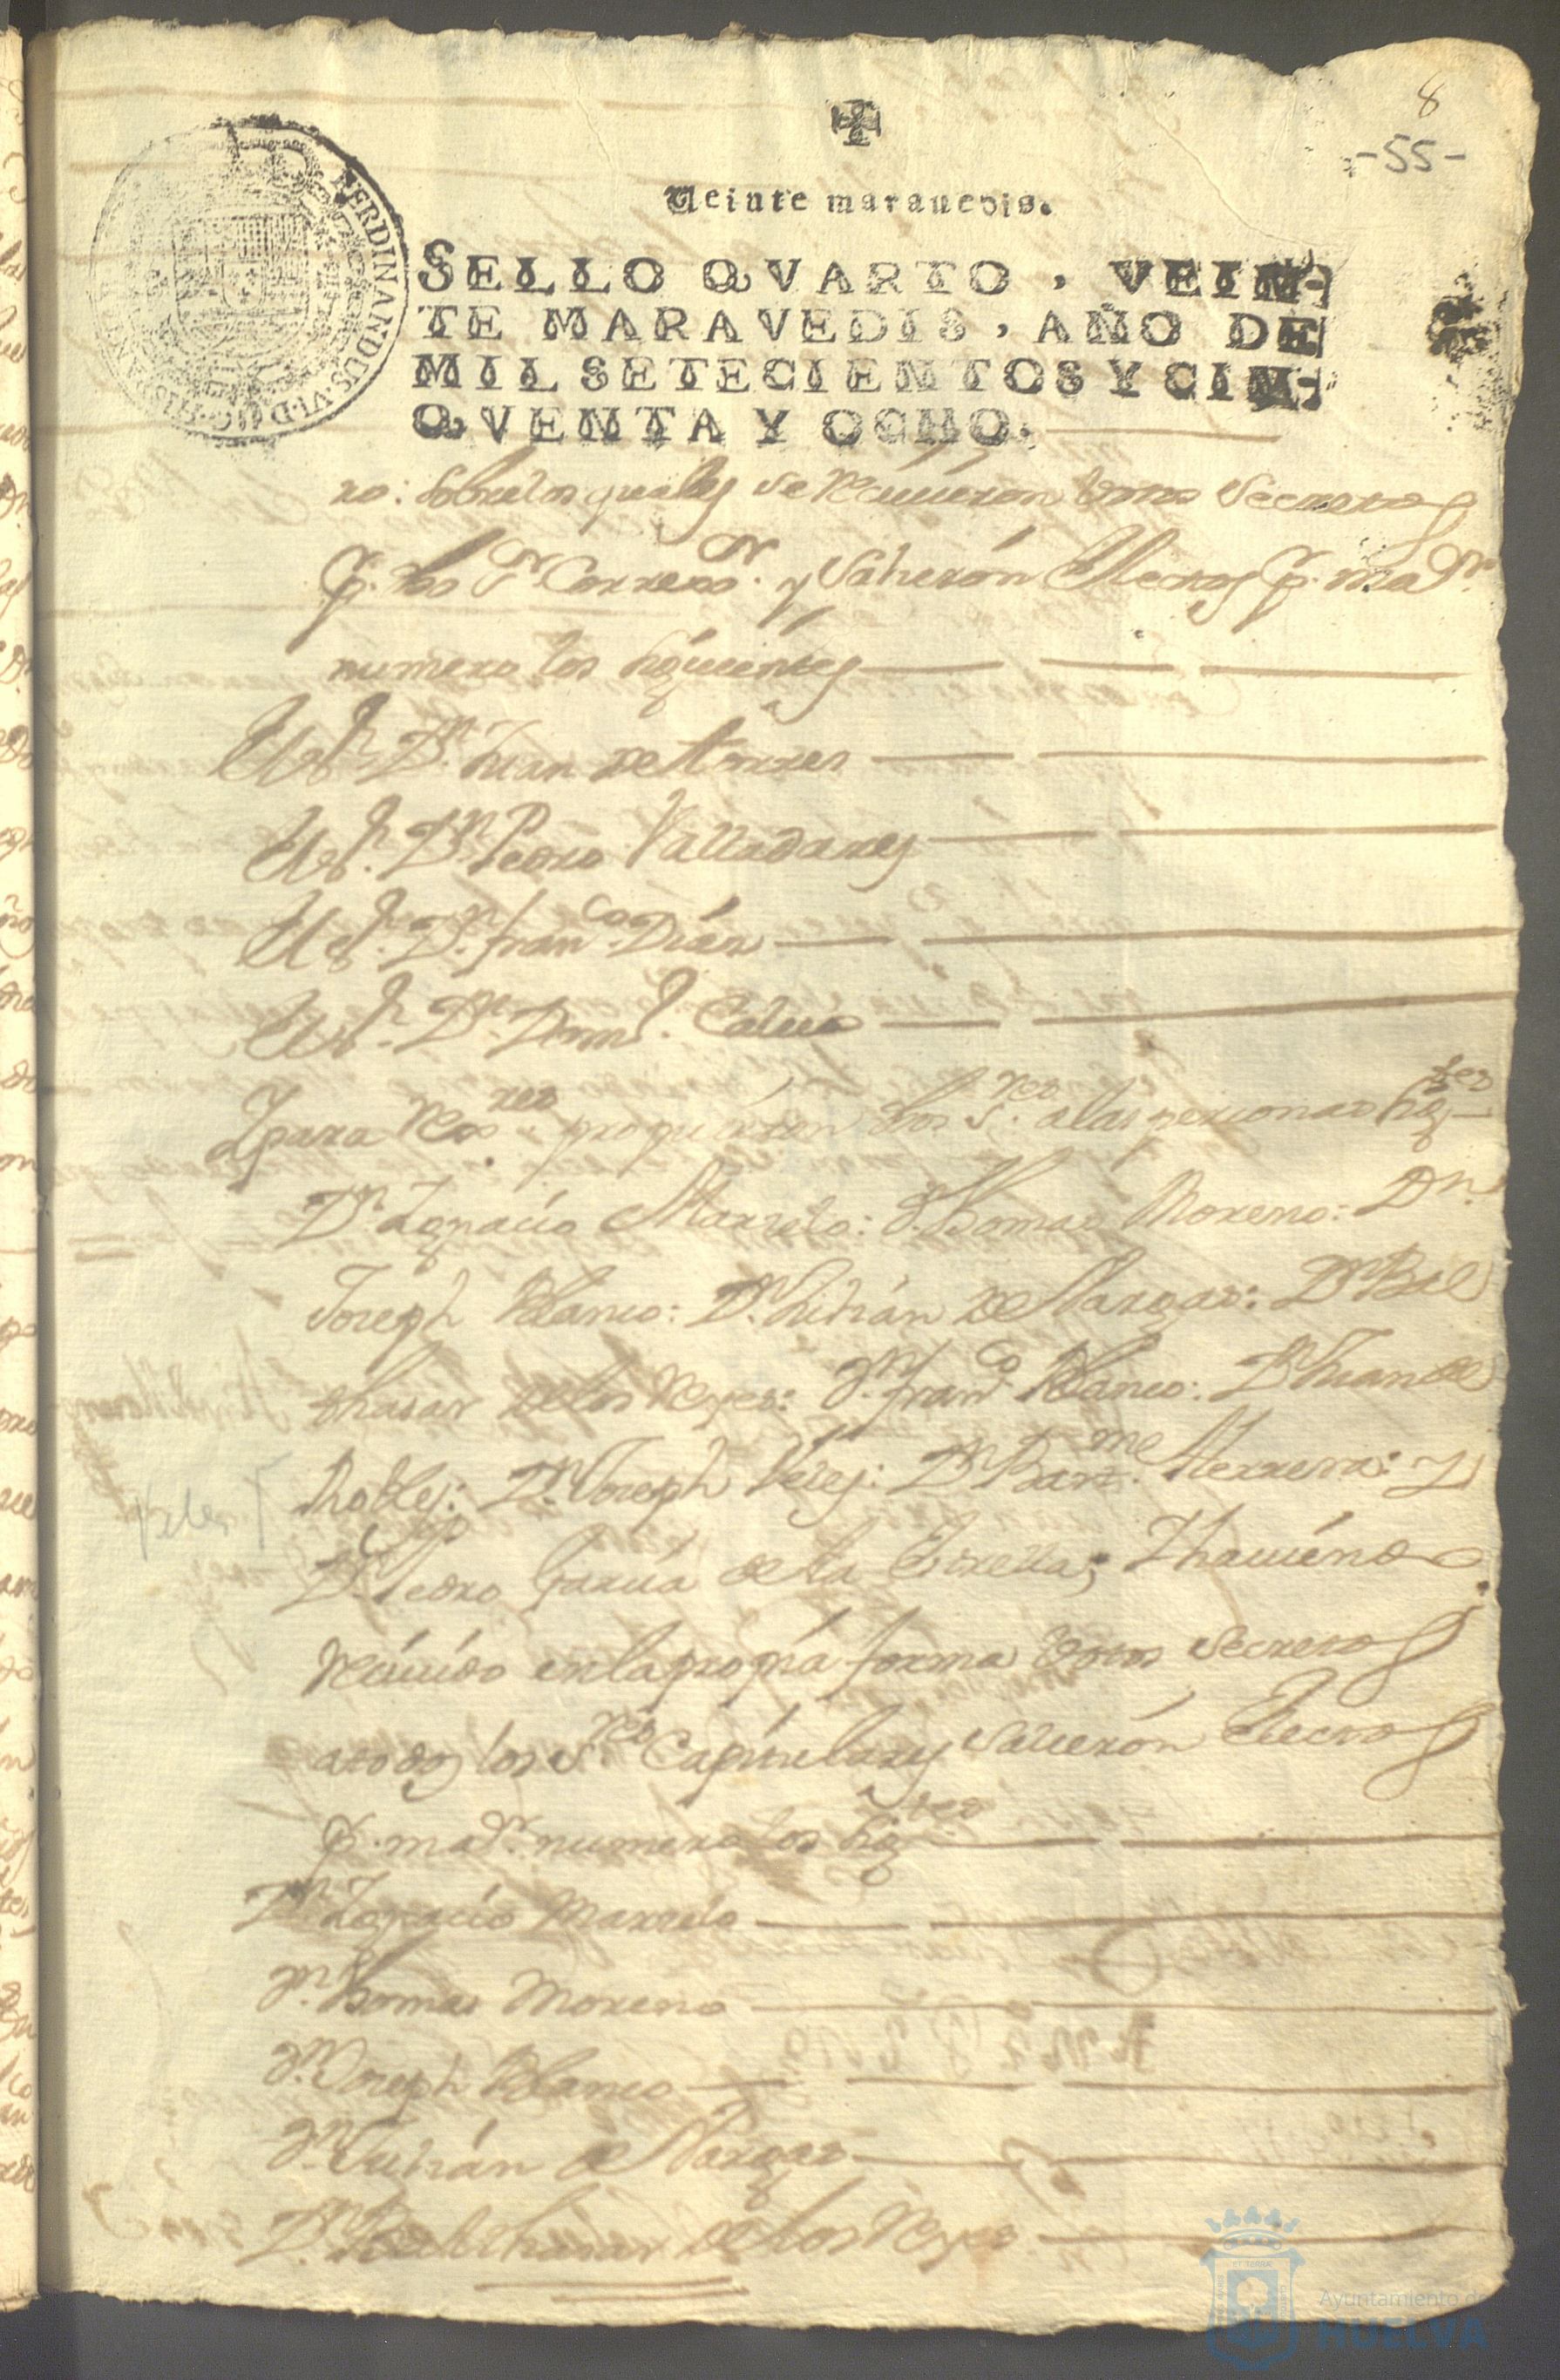 8
-55-
Veinte maravedis.
FERDINANDUS·VI·D·G·HISPANIAR
SELLO QVARTO, VEIN-
TE MARAVEDIS, AÑO DE
MIL SETECIENTOS Y CIN-
QVENTA Y OCHO.
ro: Sobre los quales se reciuieron votos Secretos
p. dho Sr. Corregor. y Salieron Electos p. maor.
numero los siguientes
El Sr. Dn. Juan de Torres
El Sr. Dn. Pedro Valladares
El Sr. Dn. Franco. Dias
El Sr. Dn. Domo. Calvo
Y para Regres. propusieron dhos Sres. a las personas sigtes
Dn. Ygnacio Marselo: Dn. Thomas Moreno: Dn.
Joseph Blanco: Dn. Julián de Vargas: Dn. Bal
thasar de los Reyes: Dn. Franco. Blanco: Dn. Juan de
Robles: Dn. Joseph Veles: Dn. Barme. Herrera: Y
Dn. Pedro Garcia de la Estrella; Y haviendo
reciuido en la propia forma votos Secretos
a todos los Sres. Capitulares Salieron Electos
p. maor. numero los sigtes
Dn. Ygnacio Marselo
Dn. Thomas Moreno
Dn. Joseph Blanco
Dn. Julián de Vargas
Dn. Balthasar de los Reyes
Ayuntamiento de
HUELVA